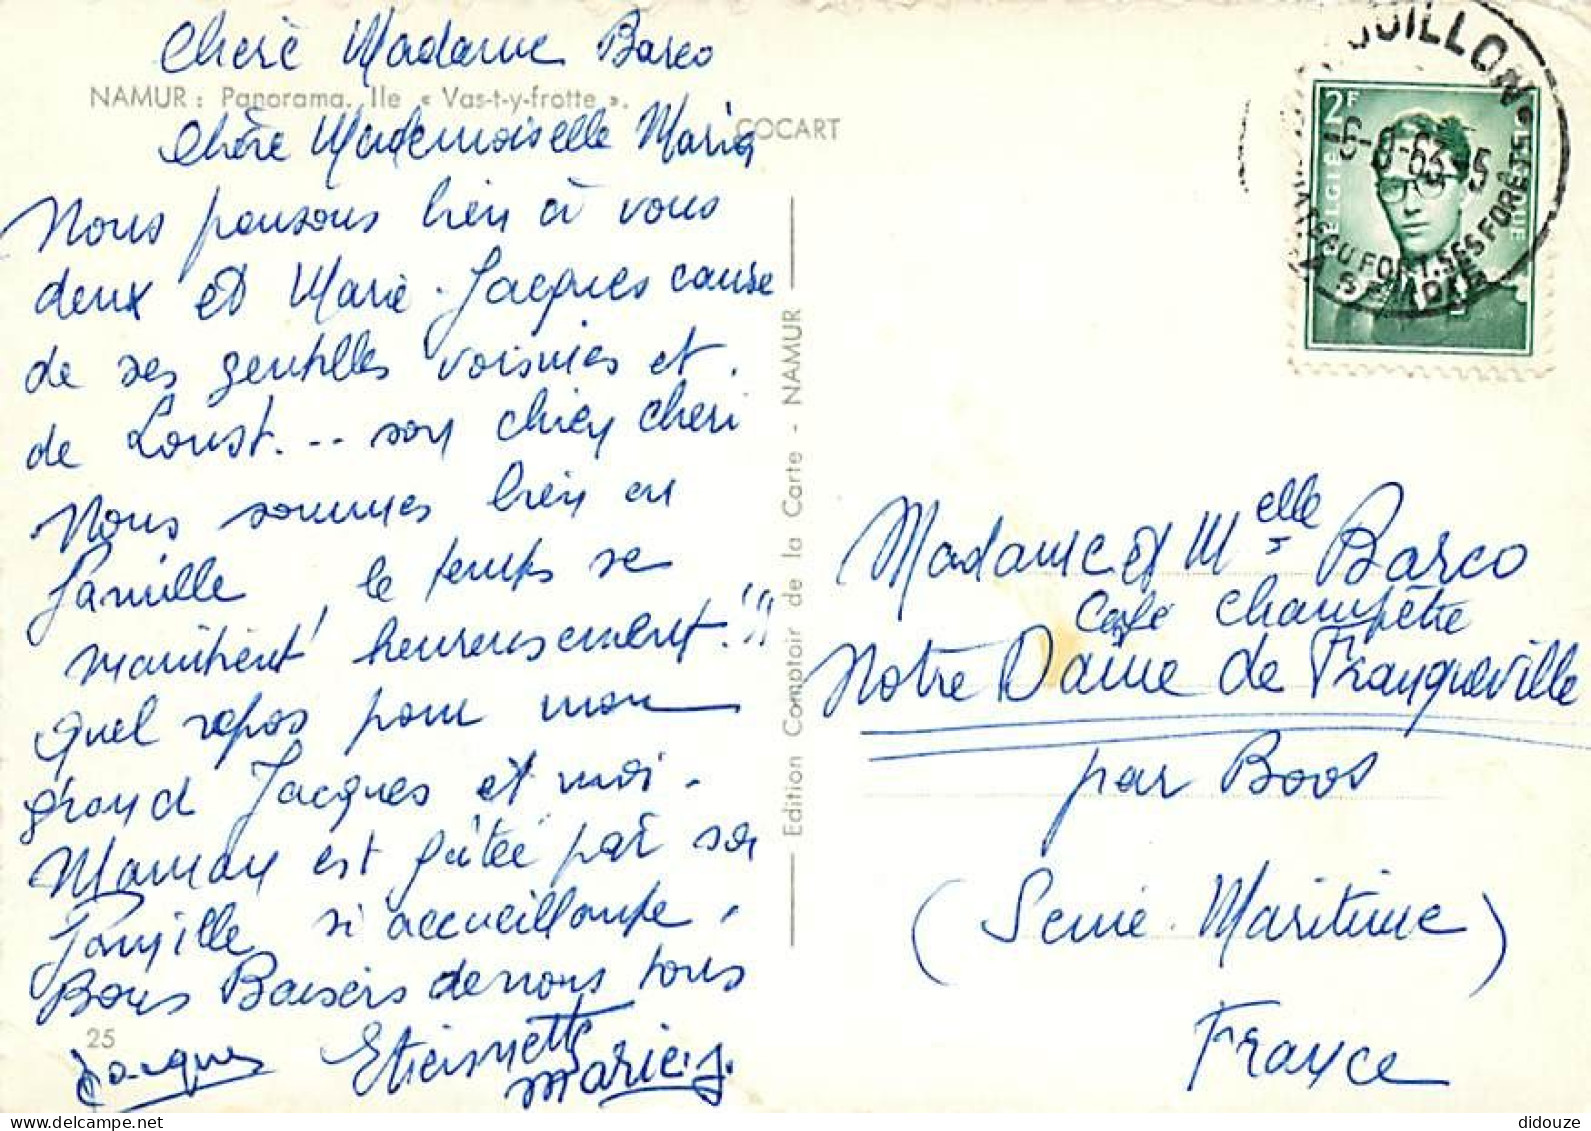 Chère Madame Barco
NAMUR : Panorama. Ile « Vas-t-y-frotte ».
COCART
Chère Mademoiselle Maria
Nous pensons bien à vous
deux et Marie-Jacques cause
de ses gentilles voisines et
de Loust... son chien chéri
Nous sommes bien en
famille le temps se
maintient heureusement!!!
Quel repos pour mon
grand Jacques et moi.
Maman est gâtée par sa
famille si accueillante.
Bons Baisers de nous tous
25
Jacques Etiennette
Marie.J.
Edition Comptoir de la Carte - NAMUR
OUILLON
-63
EAU FORT. SES FORETS
2F
Madame et Melle Barco
Café Champêtre
Notre Dame de Franqueville
par Boos
(Seine Maritime)
France
didouze